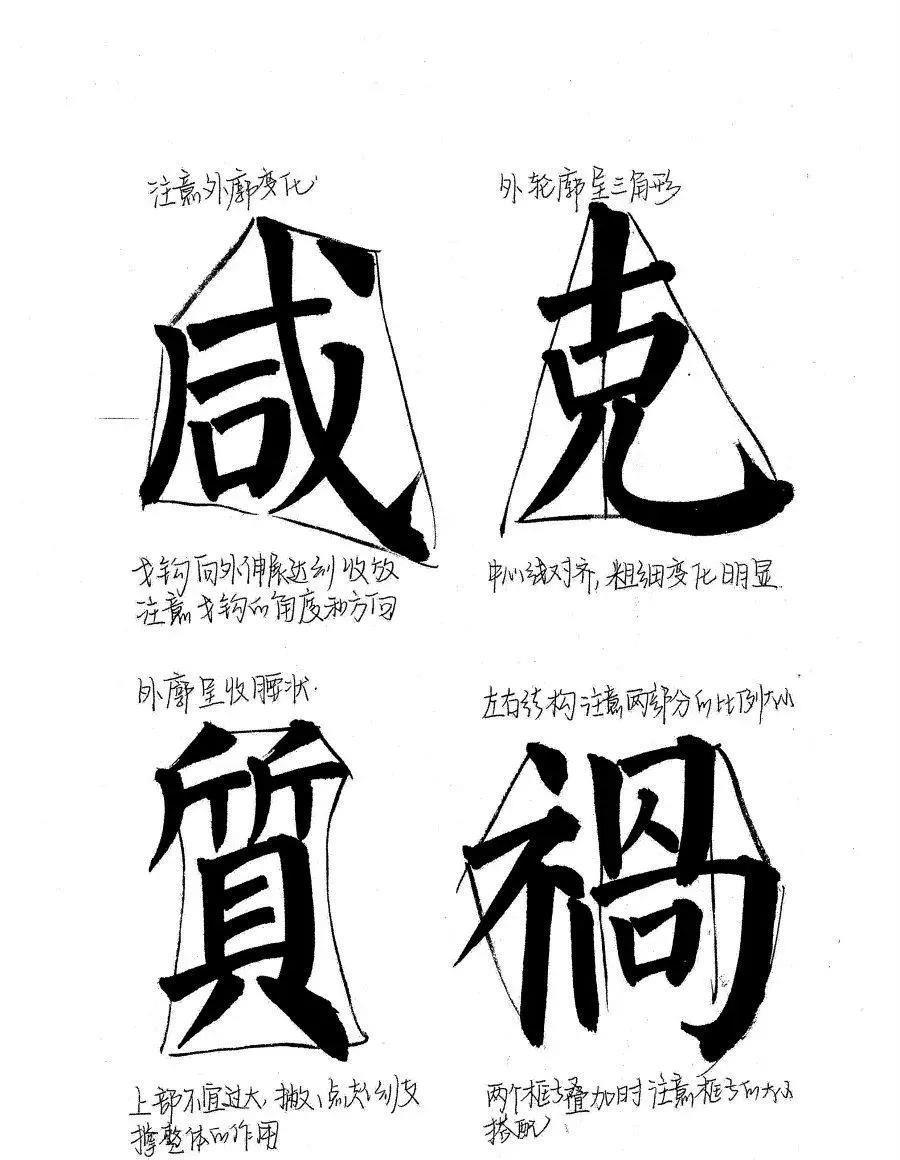 注意外廓变化
咸
戈钩向外伸展达到收放
注意戈钩的角度和方向
外轮廓呈三角形
克
中心线对齐,粗细变化明显
外廓呈收腰状
質
上部不宜过大,撇、点起到支
撑整体的作用
左右结构注意两部分的比例大小
禍
两个框与叠加时注意框与的大小
搭配